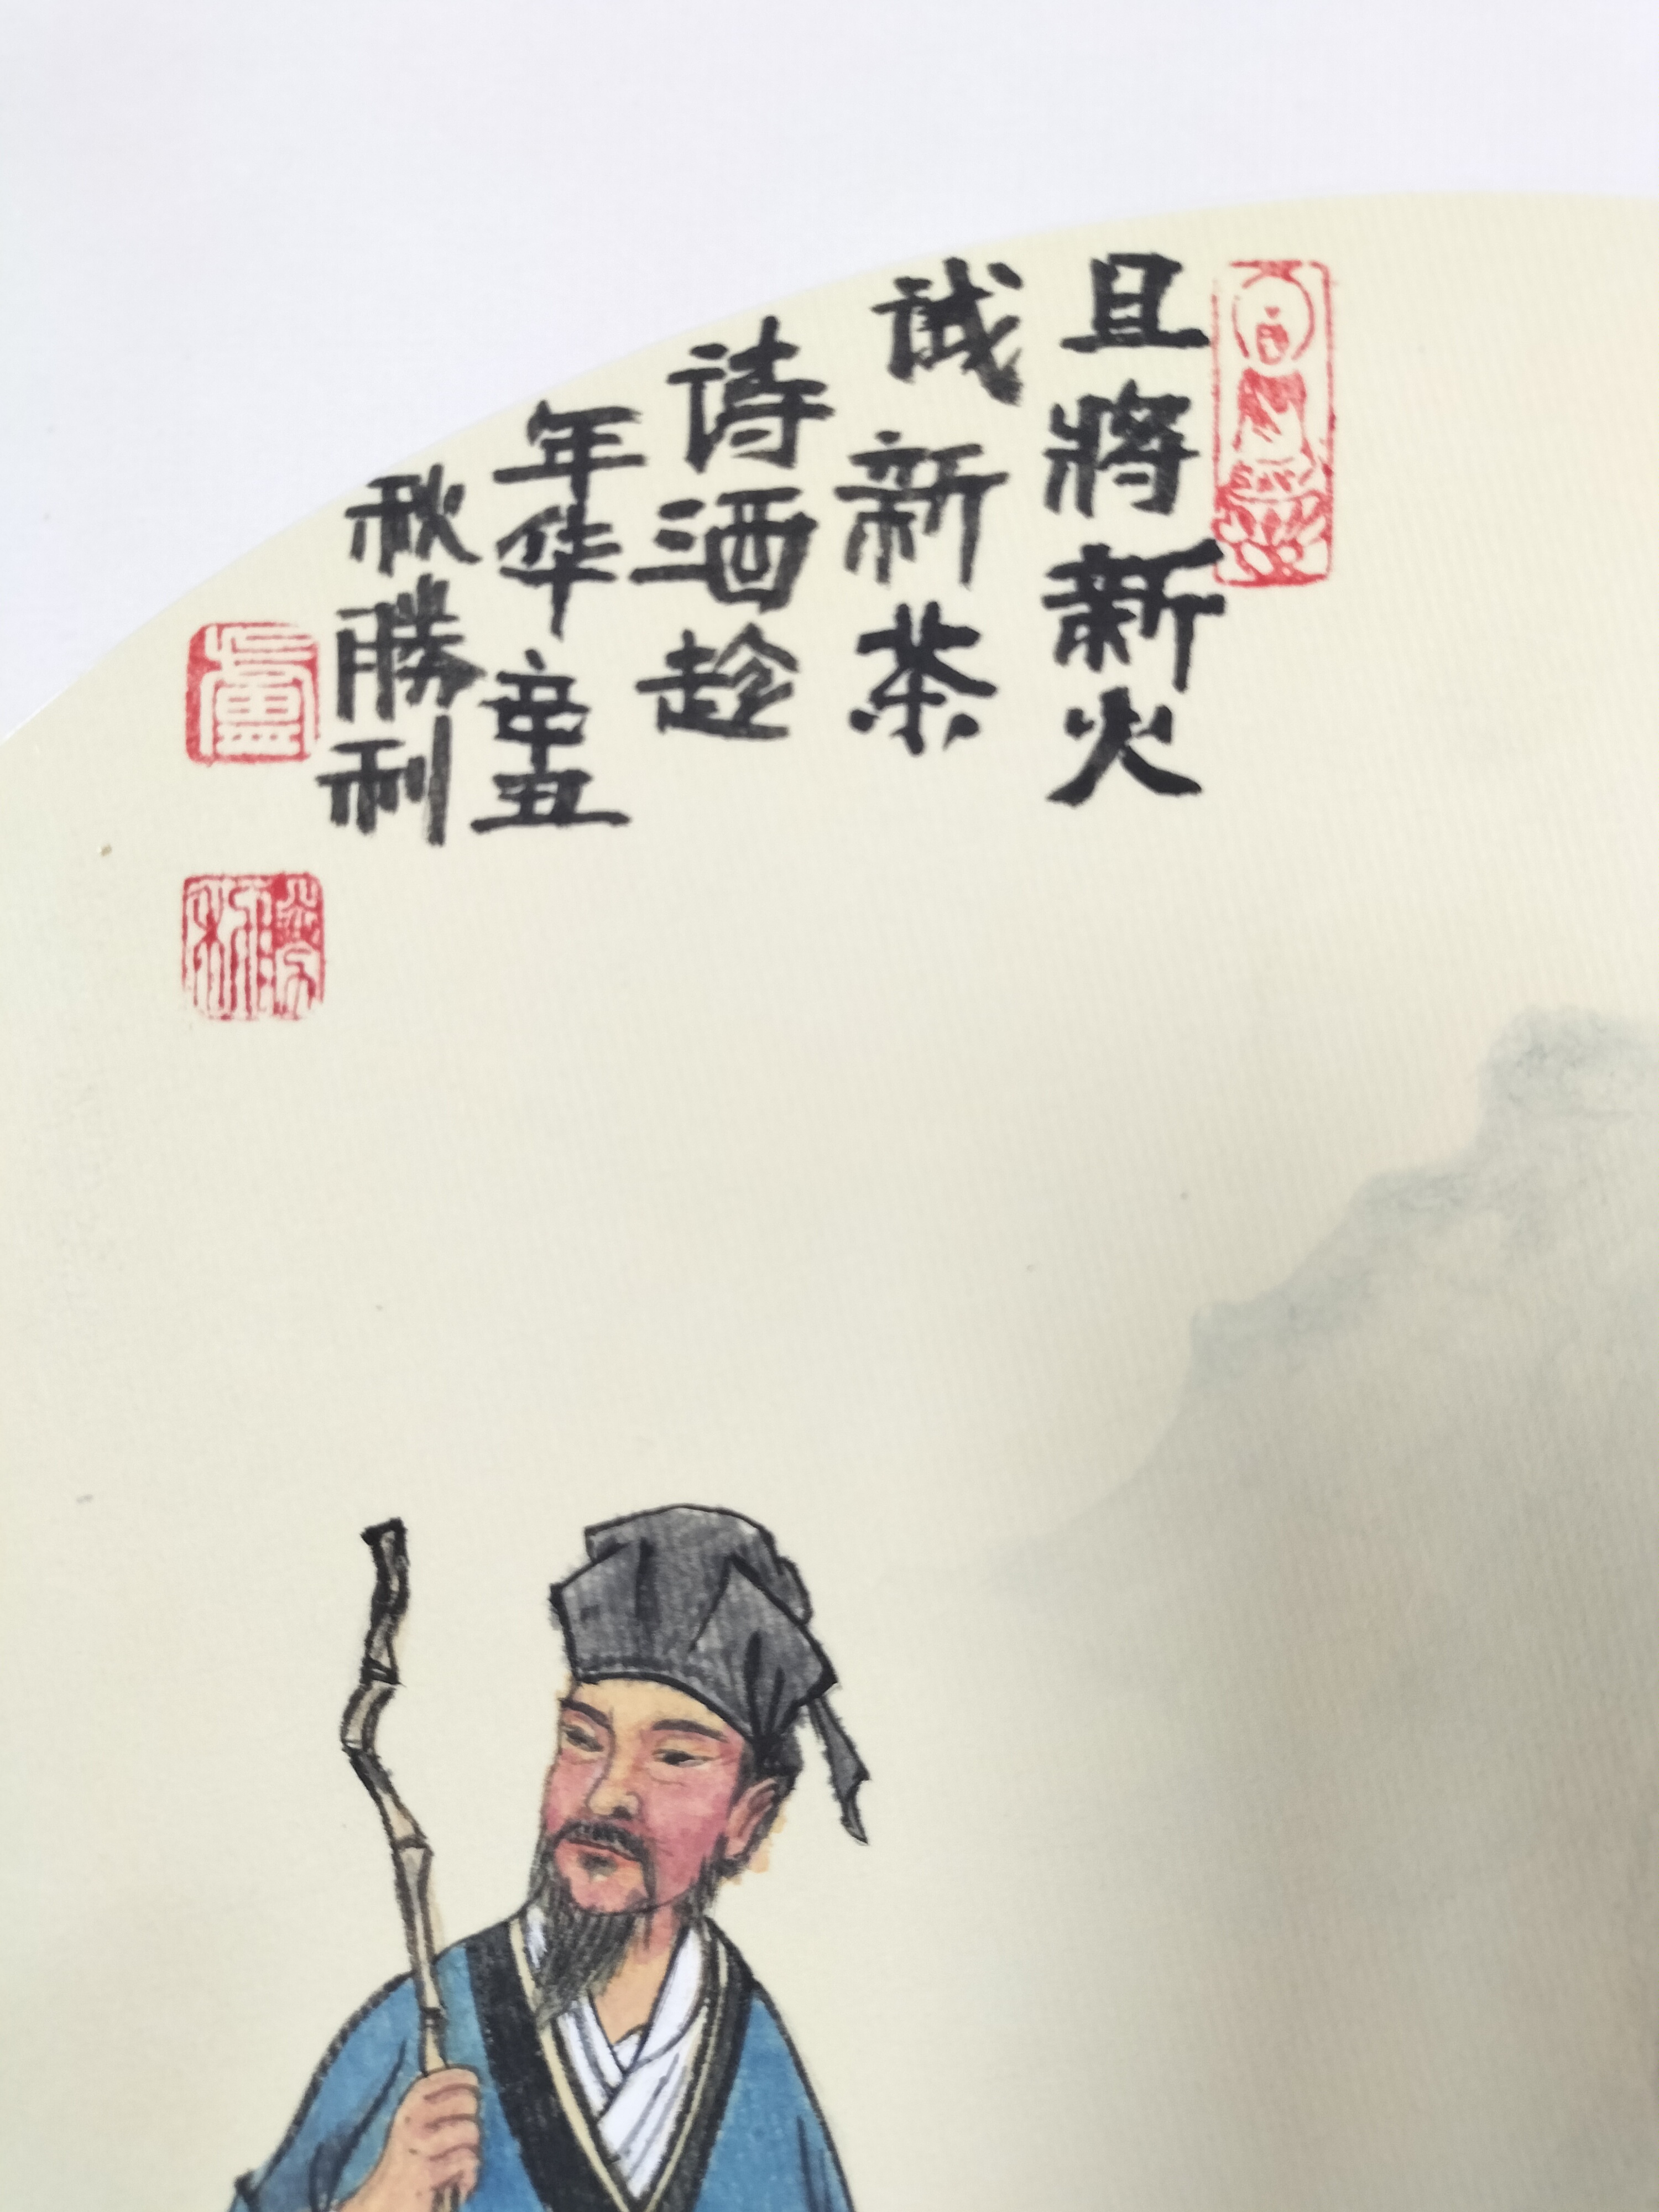 且將新火
试新茶
诗酒趁
年华辛丑
秋勝利
盧